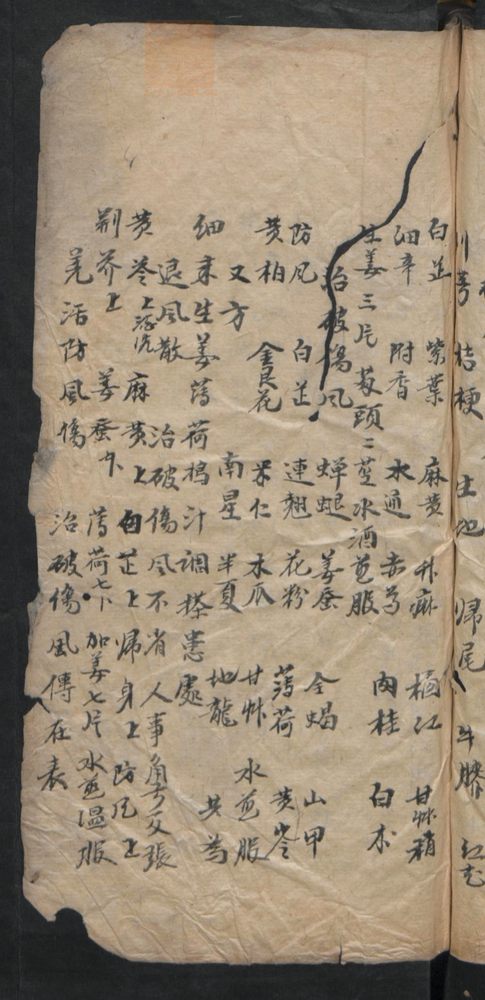 川芎 桔梗 生地 归尾 牛膝 红花
白芷 紫葉 麻黄 升麻 梔红 甘艸稍
细辛 附香 木通 赤芍 肉桂 白术
生姜三片 葱頭二莖 水酒煎服
治破傷风 蝉蜕 姜蚕 全蝎 山甲
防风 白芷 連翹 花粉 薄荷 黄岺
黄柏 金艮花 米仁 木瓜 甘艸 水煎服
又方 南星 半夏 地龍 共為
细末生姜薄荷搗汁調搽患處
退风散 治破傷风不省人事角弓反張
黄岺上 酒洗 麻黄上 白芷上 歸身上 防风上
荆芥上 姜蚕卞 薄荷七卜 加姜七片 水煎温服
羌活防風傷 治破傷風傳在表